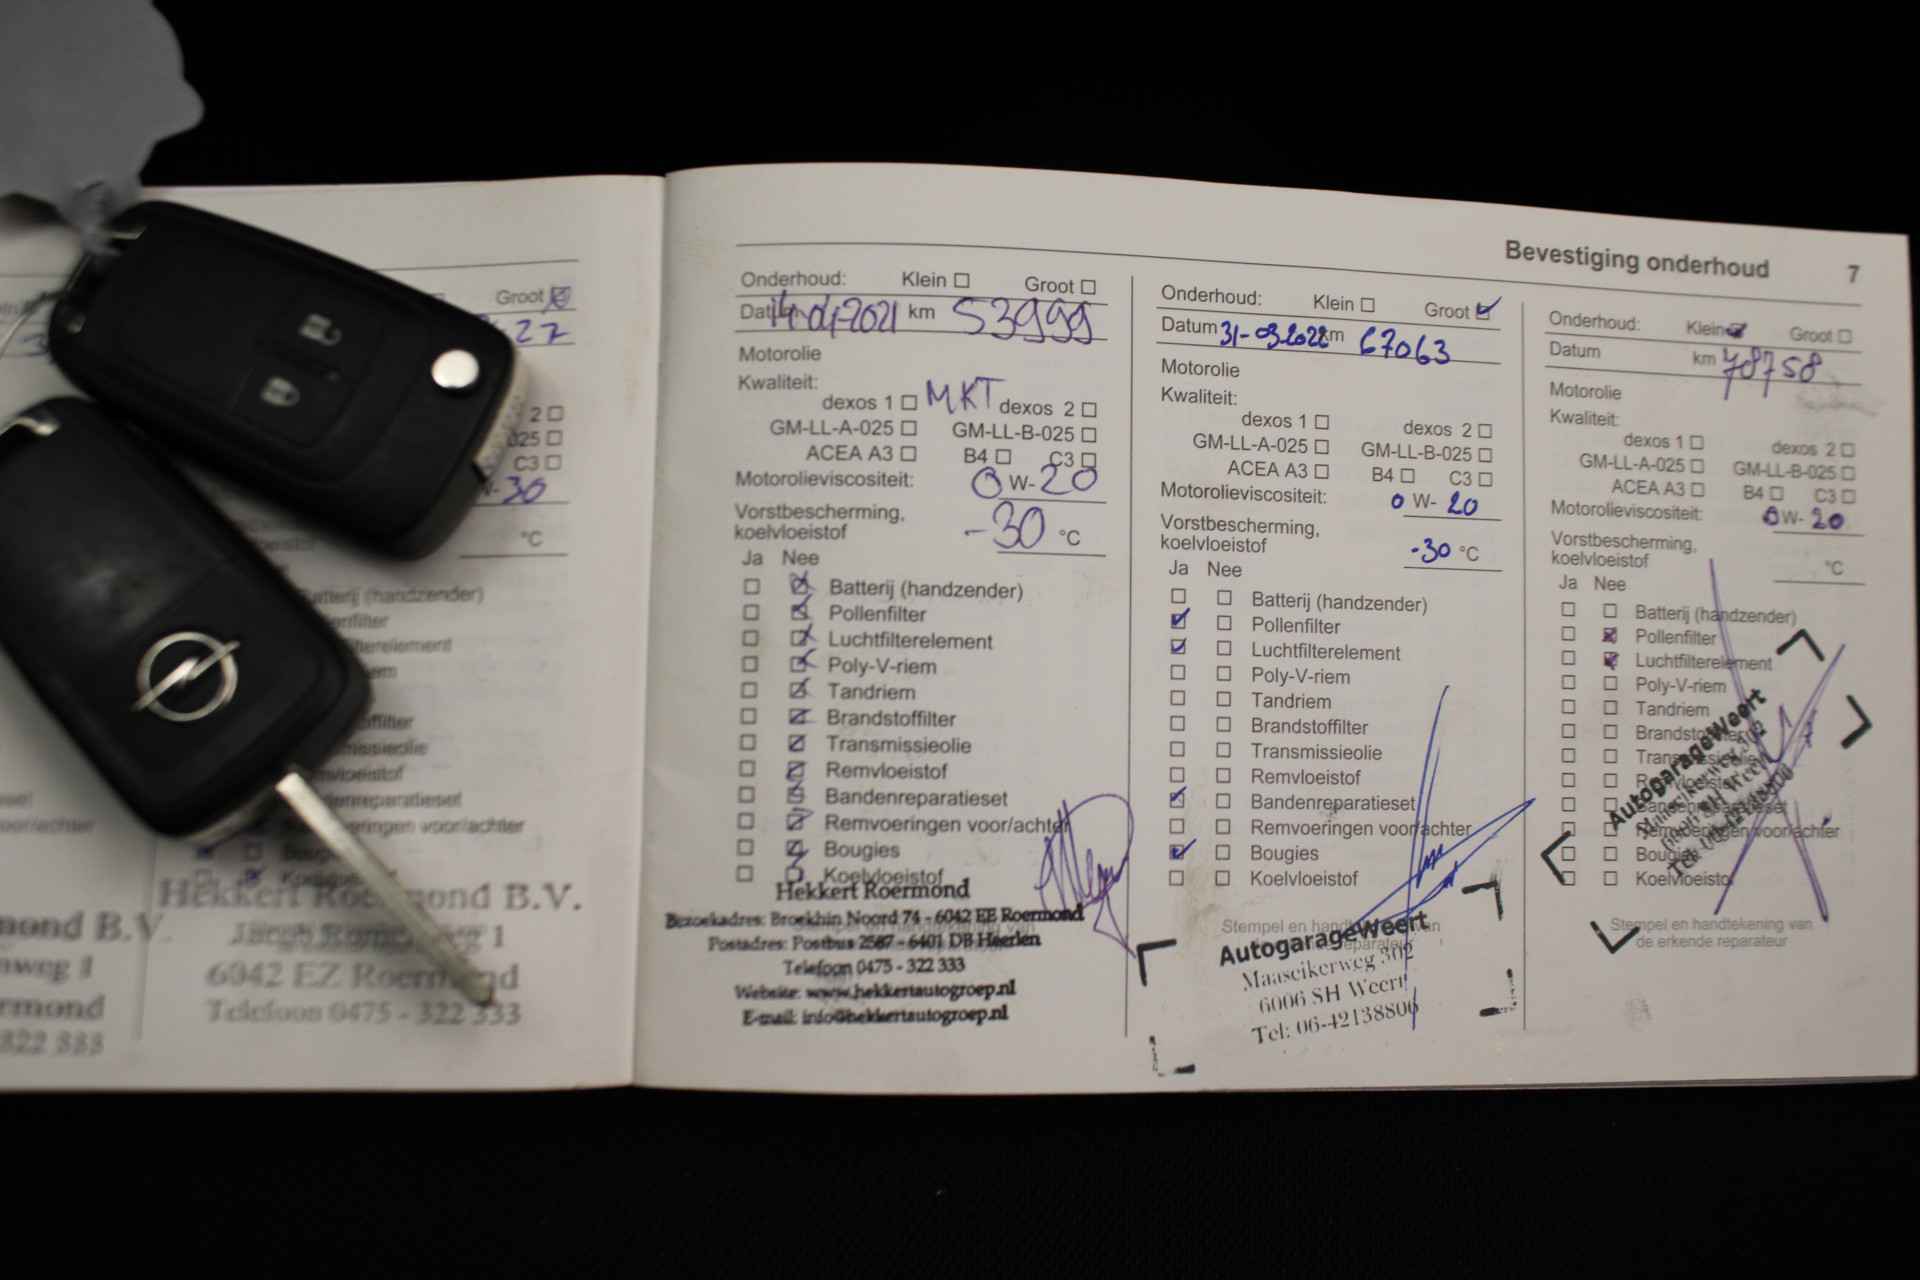 Groot
27
2
025
C3
W-30
°C
Batterij (handzender)
Hekkert Roermond B.V.
6042 EZ Roermond
Telefoon 0475 - 322 333
mond B.V.
weg 1
rmond
322 333
Bevestiging onderhoud 7
Onderhoud: Klein Groot
Datum 14-04-2021 km 53999
Motorolie
Kwaliteit:
dexos 1 MKT dexos 2
GM-LL-A-025 GM-LL-B-025
ACEA A3 B4 C3
Motorolieviscositeit: 0 W- 20
Vorstbescherming,
koelvloeistof -30 °C
Ja Nee
Batterij (handzender)
Pollenfilter
Luchtfilterelement
Poly-V-riem
Tandriem
Brandstoffilter
Transmissieolie
Remvloeistof
Bandenreparatieset
Remvoeringen voor/achter
Bougies
Koelvloeistof
Hekkert Roermond
Bezoekadres: Broekhin Noord 74 - 6042 EE Roermond
Postadres: Postbus 2587 - 6401 DB Heerlen
Telefoon 0475 - 322 333
Website: www.hekkertautogroep.nl
E-mail: info@hekkertautogroep.nl
Onderhoud: Klein Groot
Datum 31-03-2022 km 67063
Motorolie
Kwaliteit:
dexos 1 dexos 2
GM-LL-A-025 GM-LL-B-025
ACEA A3 B4 C3
Motorolieviscositeit: 0 W- 20
Vorstbescherming,
koelvloeistof -30 °C
Ja Nee
Batterij (handzender)
Pollenfilter
Luchtfilterelement
Poly-V-riem
Tandriem
Brandstoffilter
Transmissieolie
Remvloeistof
Bandenreparatieset
Remvoeringen voor/achter
Bougies
Koelvloeistof
Stempel en handtekening van
AutogarageWeert
Maaseikerweg 302
6006 SH Weert
Tel: 06-42138806
Onderhoud: Klein Groot
Datum km 78758
Motorolie
Kwaliteit:
dexos 1 dexos 2
GM-LL-A-025 GM-LL-B-025
ACEA A3 B4 C3
Motorolieviscositeit: 0 W- 20
Vorstbescherming,
koelvloeistof °C
Ja Nee
Batterij (handzender)
Pollenfilter
Luchtfilterelement
Poly-V-riem
Tandriem
Brandstoffilter
Transmissieolie
Remvloeistof
Bandenreparatieset
Remvoeringen voor/achter
Bougies
Koelvloeistof
AutogarageWeert
Maaseikerweg 302
6006 SH Weert
Tel: 06-42138806
Stempel en handtekening van
de erkende reparateur